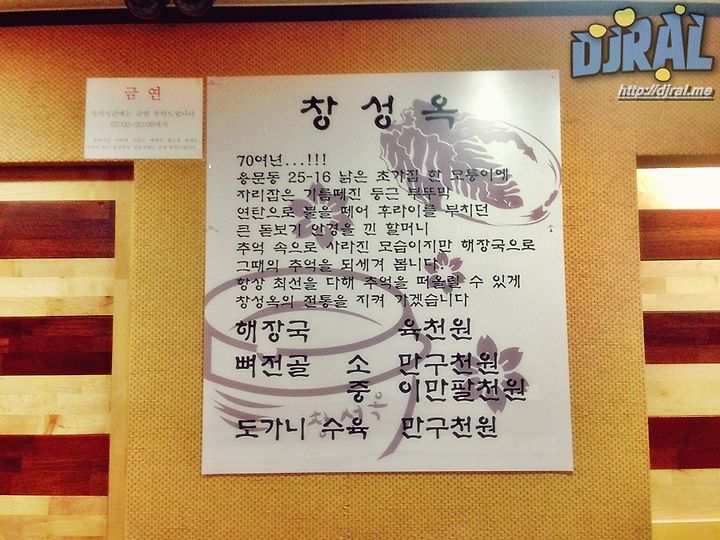 DJRAL
http://djral.me
금 연
식사시간에는 금연 부탁드립니다
07:00~20:00까지
창성옥
70여년...!!!
용문동 25-16 낡은 초가집 한 모퉁이에
자리잡은 기름떼진 둥근 부뚜막
연탄으로 불을 떼어 후라이를 부치던
큰 돋보기 안경을 낀 할머니
추억 속으로 사라진 모습이지만 해장국으로
그때의 추억을 되세겨 봅니다.
항상 최선을 다해 추억을 떠올릴 수 있게
창성옥의 전통을 지켜 가겠습니다
해장국 육천원
뼈전골 소 만구천원
중 이만팔천원
창성옥
도가니 수육 만구천원